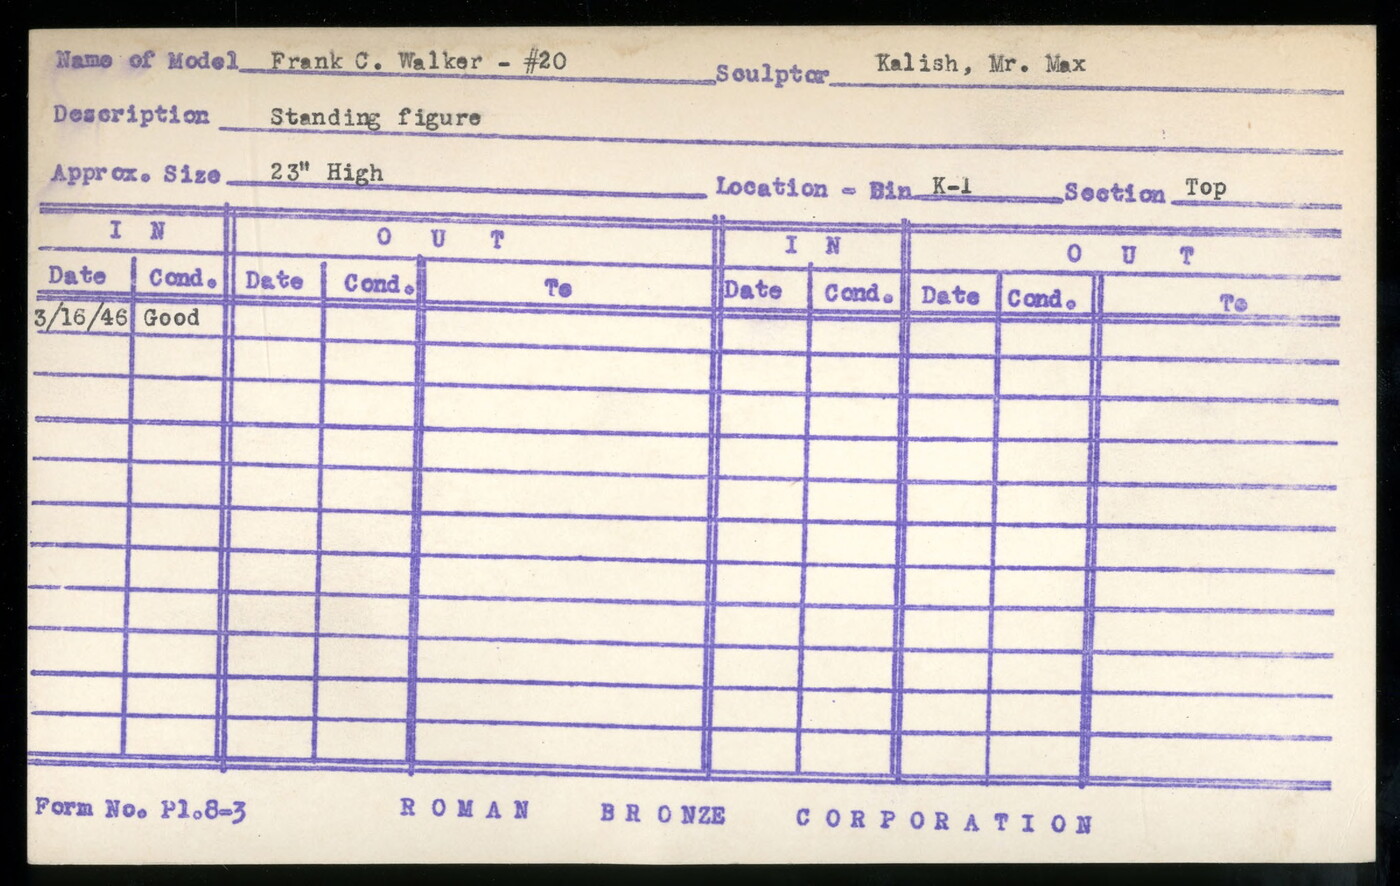 Name of Model Frank C. Walker - #20 Sculptor Kalish, Mr. Max
Description Standing figure
Approx. Size 23" High Location - Bin K-1 Section Top
I N O U T I N O U T
Date Cond. Date Cond. To Date Cond. Date Cond. To
3/16/46 Good
Form No. Pl.8-3 ROMAN BRONZE CORPORATION